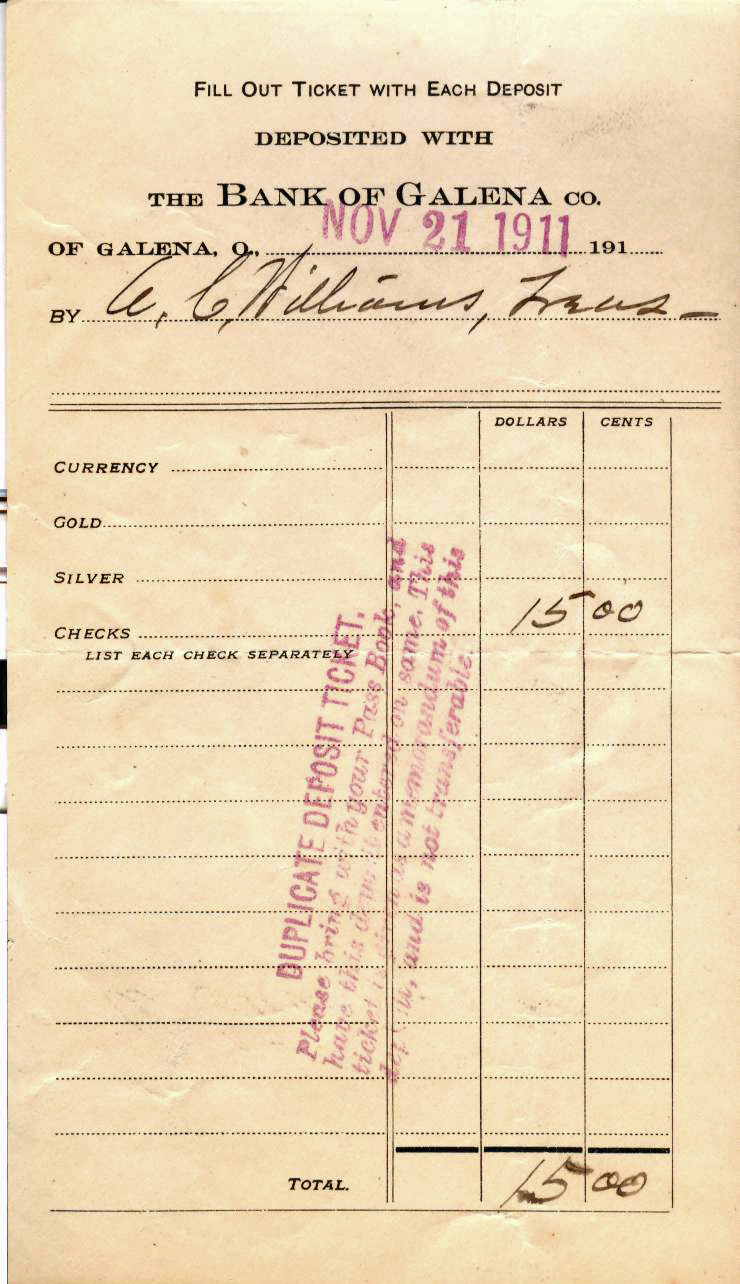 FILL OUT TICKET WITH EACH DEPOSIT
DEPOSITED WITH
THE BANK OF GALENA CO.
NOV 21 1911
OF GALENA, O., 191
BY A. C. Williams, Treas
DOLLARS CENTS
CURRENCY
GOLD
SILVER
CHECKS 15 00
LIST EACH CHECK SEPARATELY
DUPLICATE DEPOSIT TICKET.
Please bring with your Pass Book, and
have this deposit entered on same. This
ticket is a memorandum of this
deposit, and is not transferable.
TOTAL. 15 00